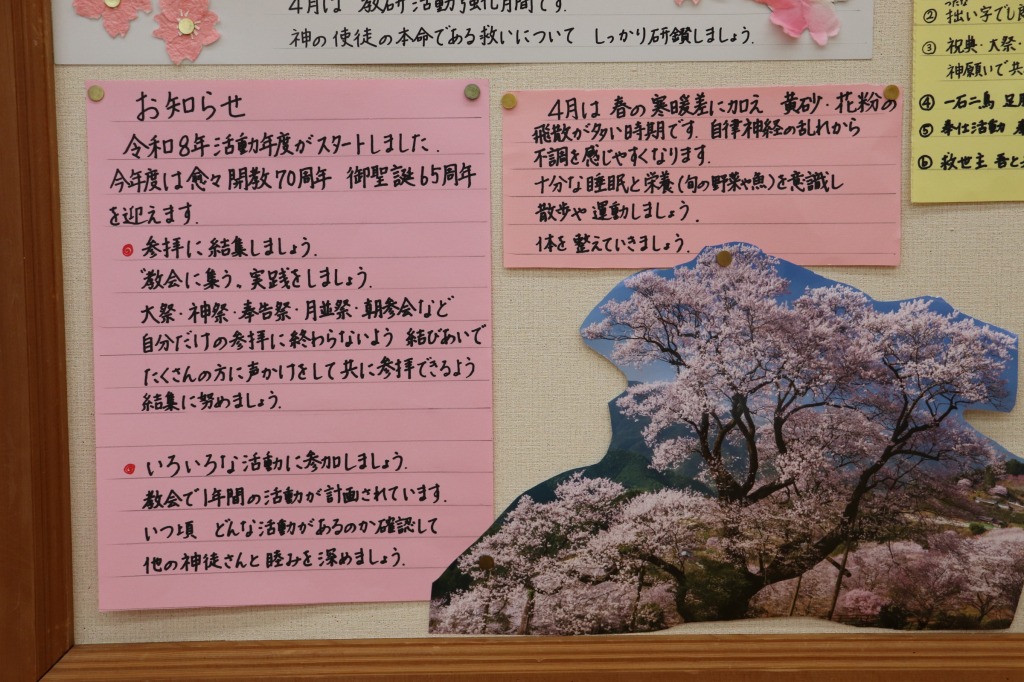 4月は 教研活動強化月間です.
神の使徒の本命である救いについて しっかり研鑽しましょう.
お知らせ
令和8年活動年度がスタートしました.
今年度は愈々開教70周年 御聖誕65周年
を迎えます.
● 参拝に結集しましょう.
〝教会に集う〟実践をしましょう.
大祭・神祭・奉告祭・月並祭・朝参会など
自分だけの参拝に終わらないよう 結びあいで
たくさんの方に声かけをして共に参拝できるよう
結集に努めましょう.
● いろいろな活動に参加しましょう.
教会で1年間の活動が計画されています.
いつ頃 どんな活動があるのか確認して
他の神徒さんと睦みを深めましょう.
4月は 春の寒暖差に加え 黄砂・花粉の
飛散が多い時期です. 自律神経の乱れから
不調を感じやすくなります.
十分な睡眠と栄養(旬の野菜や魚)を意識し
散歩や運動しましょう.
体を整えていきましょう.
② 拙い字でし
③ 祝典・大祭・
神願いで共
④ 一石二鳥 足
⑤ 奉仕活動
⑥ 救世主 吾と